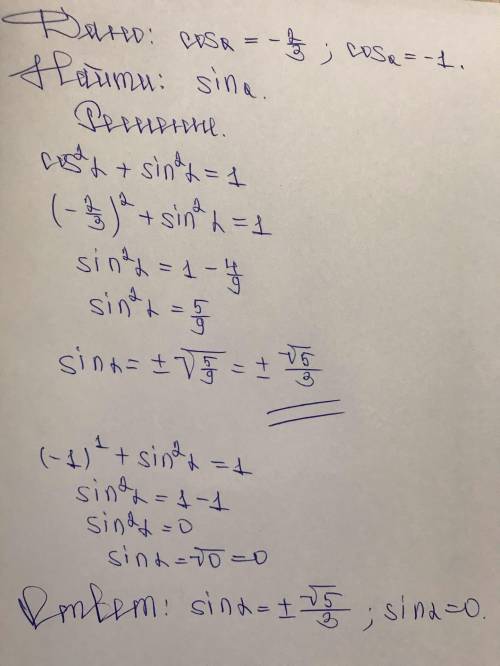 Дано: cosα = -2/3 ; cosα = -1.
Найти: sinα.
Решение.
cos²α + sin²α = 1
(-2/3)² + sin²α = 1
sin²α = 1 - 4/9
sin²α = 5/9
sinα = ± √(5/9) = ± √5/3
(-1)¹ + sin²α = 1
sin²α = 1 - 1
sin²α = 0
sinα = √0 = 0
Ответ: sinα = ± √5/3 ; sinα = 0.